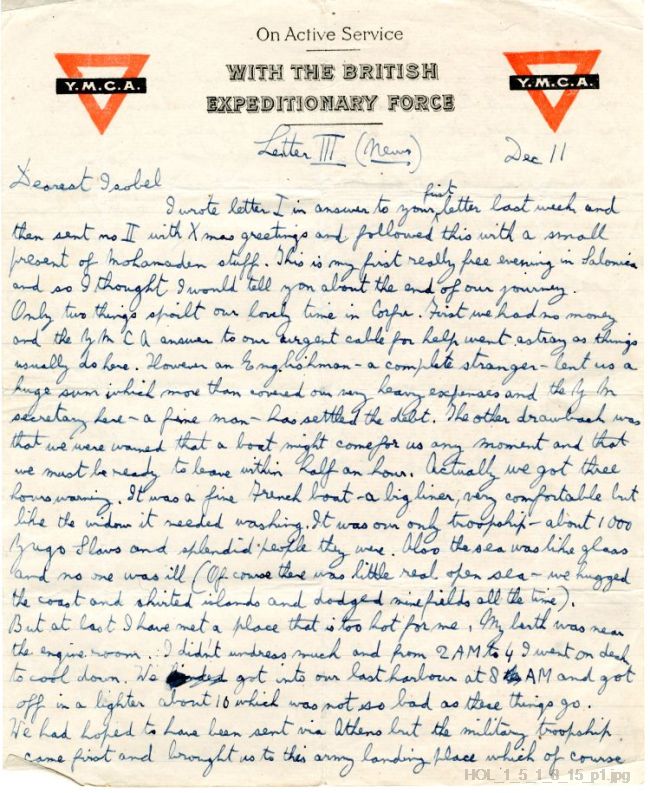 On Active Service
WITH THE BRITISH
EXPEDITIONARY FORCE
Y.M.C.A.
Y.M.C.A.
Letter III (News)
Dec 11
Dearest Isobel
I wrote letter I in answer to your first letter last week, and
then sent no II with Xmas greetings and followed this with a small
present of Mohamaden stuff. This is my first really free evening in Salonica
and so I thought I would tell you about the end of our journey.
Only two things spoilt our lovely time in Corfu. First we had no money
and the Y M C A answer to our urgent cable for help went astray as things
usually do here. However an Englishman - a complete stranger - lent us a
huge sum which more than covered our very heavy expenses and the Y M
secretary here - a fine man - has settled the debt. The other drawback was
that we were warned that a boat might come for us any moment and that
we must be ready to leave within half an hour. Actually we got three
hours warning. It was a fine French boat - a big liner, very comfortable but
like the widow it needed washing. It was our only troopship - about 1000
Yugo Slavs and splendid people they were. Also the sea was like glass
and no one was ill (Of course there was little real open sea - we hugged
the coast and skirted islands and dodged minefields all the time).
But at last I have met a place that is too hot for me. My berth was near
the engine room. I didn't undress much and from 2 AM to 4 I went on deck
to cool down. We landed got into our last harbour at 8 AM and got
off in a lighter about 10 which was not so bad as these things go.
We had hoped to have been sent via Athens but the military troopship
came first and brought us to this army landing place which of course
HOL_1_5_1_8_15_p1.jpg